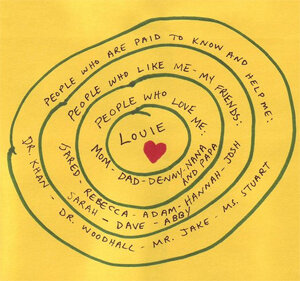 PEOPLE WHO ARE PAID TO KNOW AND HELP ME:
DR. KHAN - DR. WOODHALL - MR. JAKE - MS. STUART
PEOPLE WHO LIKE ME - MY FRIENDS:
JARED - REBECCA - ADAM - HANNAH - JOSH
SARAH - DAVE - ABBY
PEOPLE WHO LOVE ME:
MOM - DAD - DENNY - NANA
AND PAPA
LOUIE